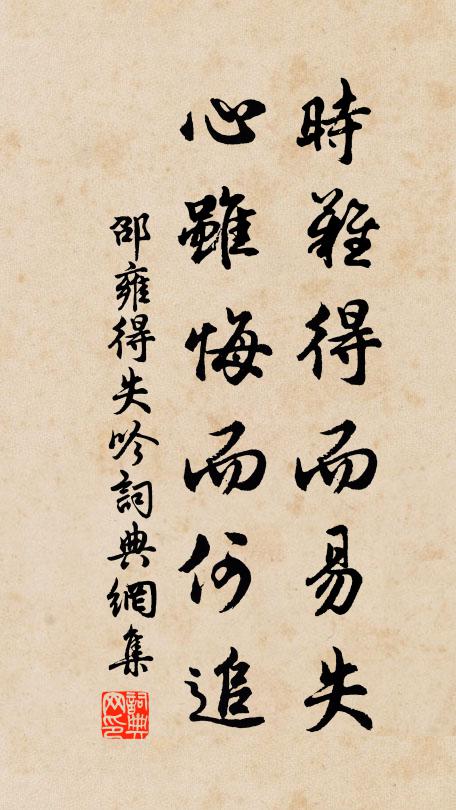 時難得而易失
心雖悔而何追
邵雍得失吟詞典網集
詞典
网印